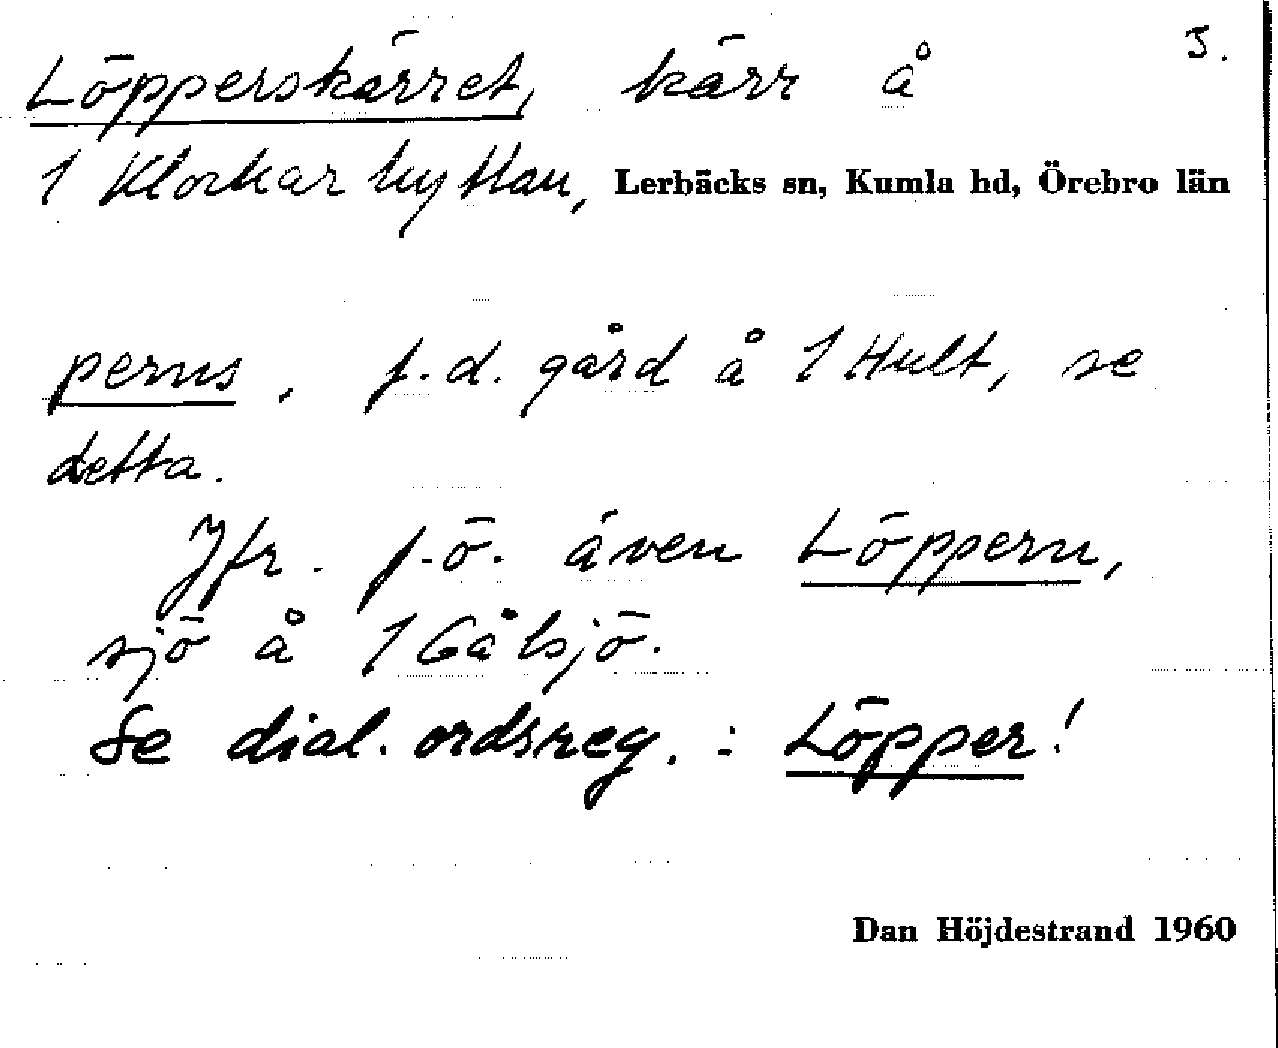 3.
Löpperskärret, kärr å
1 Klockarhyttan, Lerbäcks sn, Kumla hd, Örebro län
perns, f.d. gård å 1 Hult, se
detta.
Jfr. f.ö. även Löppern,
sjö å 1 Gålsjö.
Se dial. ordsreg. : Löpper!
Dan Höjdestrand 1960